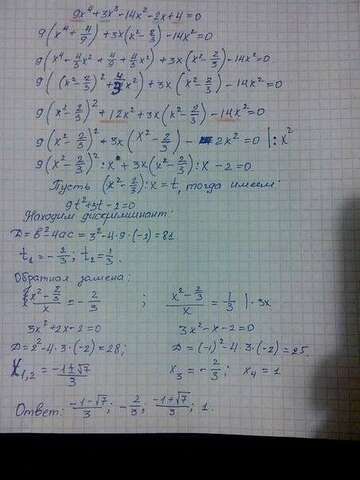 9x⁴+3x³-14x²-2x+4=0
9(x⁴+4/9)+3x(x²-2/3)-14x²=0
9(x⁴-4/3x²+4/9+4/3x²)+3x(x²-2/3)-14x²=0
9((x²-2/3)²+4/3x²)+3x(x²-2/3)-14x²=0
9(x²-2/3)²+12x²+3x(x²-2/3)-14x²=0
9(x²-2/3)²+3x(x²-2/3)-2x²=0 |:x²
9(x²-2/3)²:x²+3x(x²-2/3):x-2=0
Пусть (x²-2/3):x=t, тогда имеем:
9t²+3t-2=0
Находим дискриминант:
D=b²-4ac=3²-4·9·(-2)=81
t₁=-2/3; t₂=1/3.
Обратная замена:
(x²-2/3)/x=-2/3 ; (x²-2/3)/x=1/3 |·3x
3x²+2x-2=0 3x²-x-2=0
D=2²-4·3·(-2)=28; D=(-1)²-4·3·(-2)=25
x₁,₂=(-1±√7)/3 x₃=-2/3; x₄=1
Ответ: (-1-√7)/3; -2/3; (-1+√7)/3; 1.